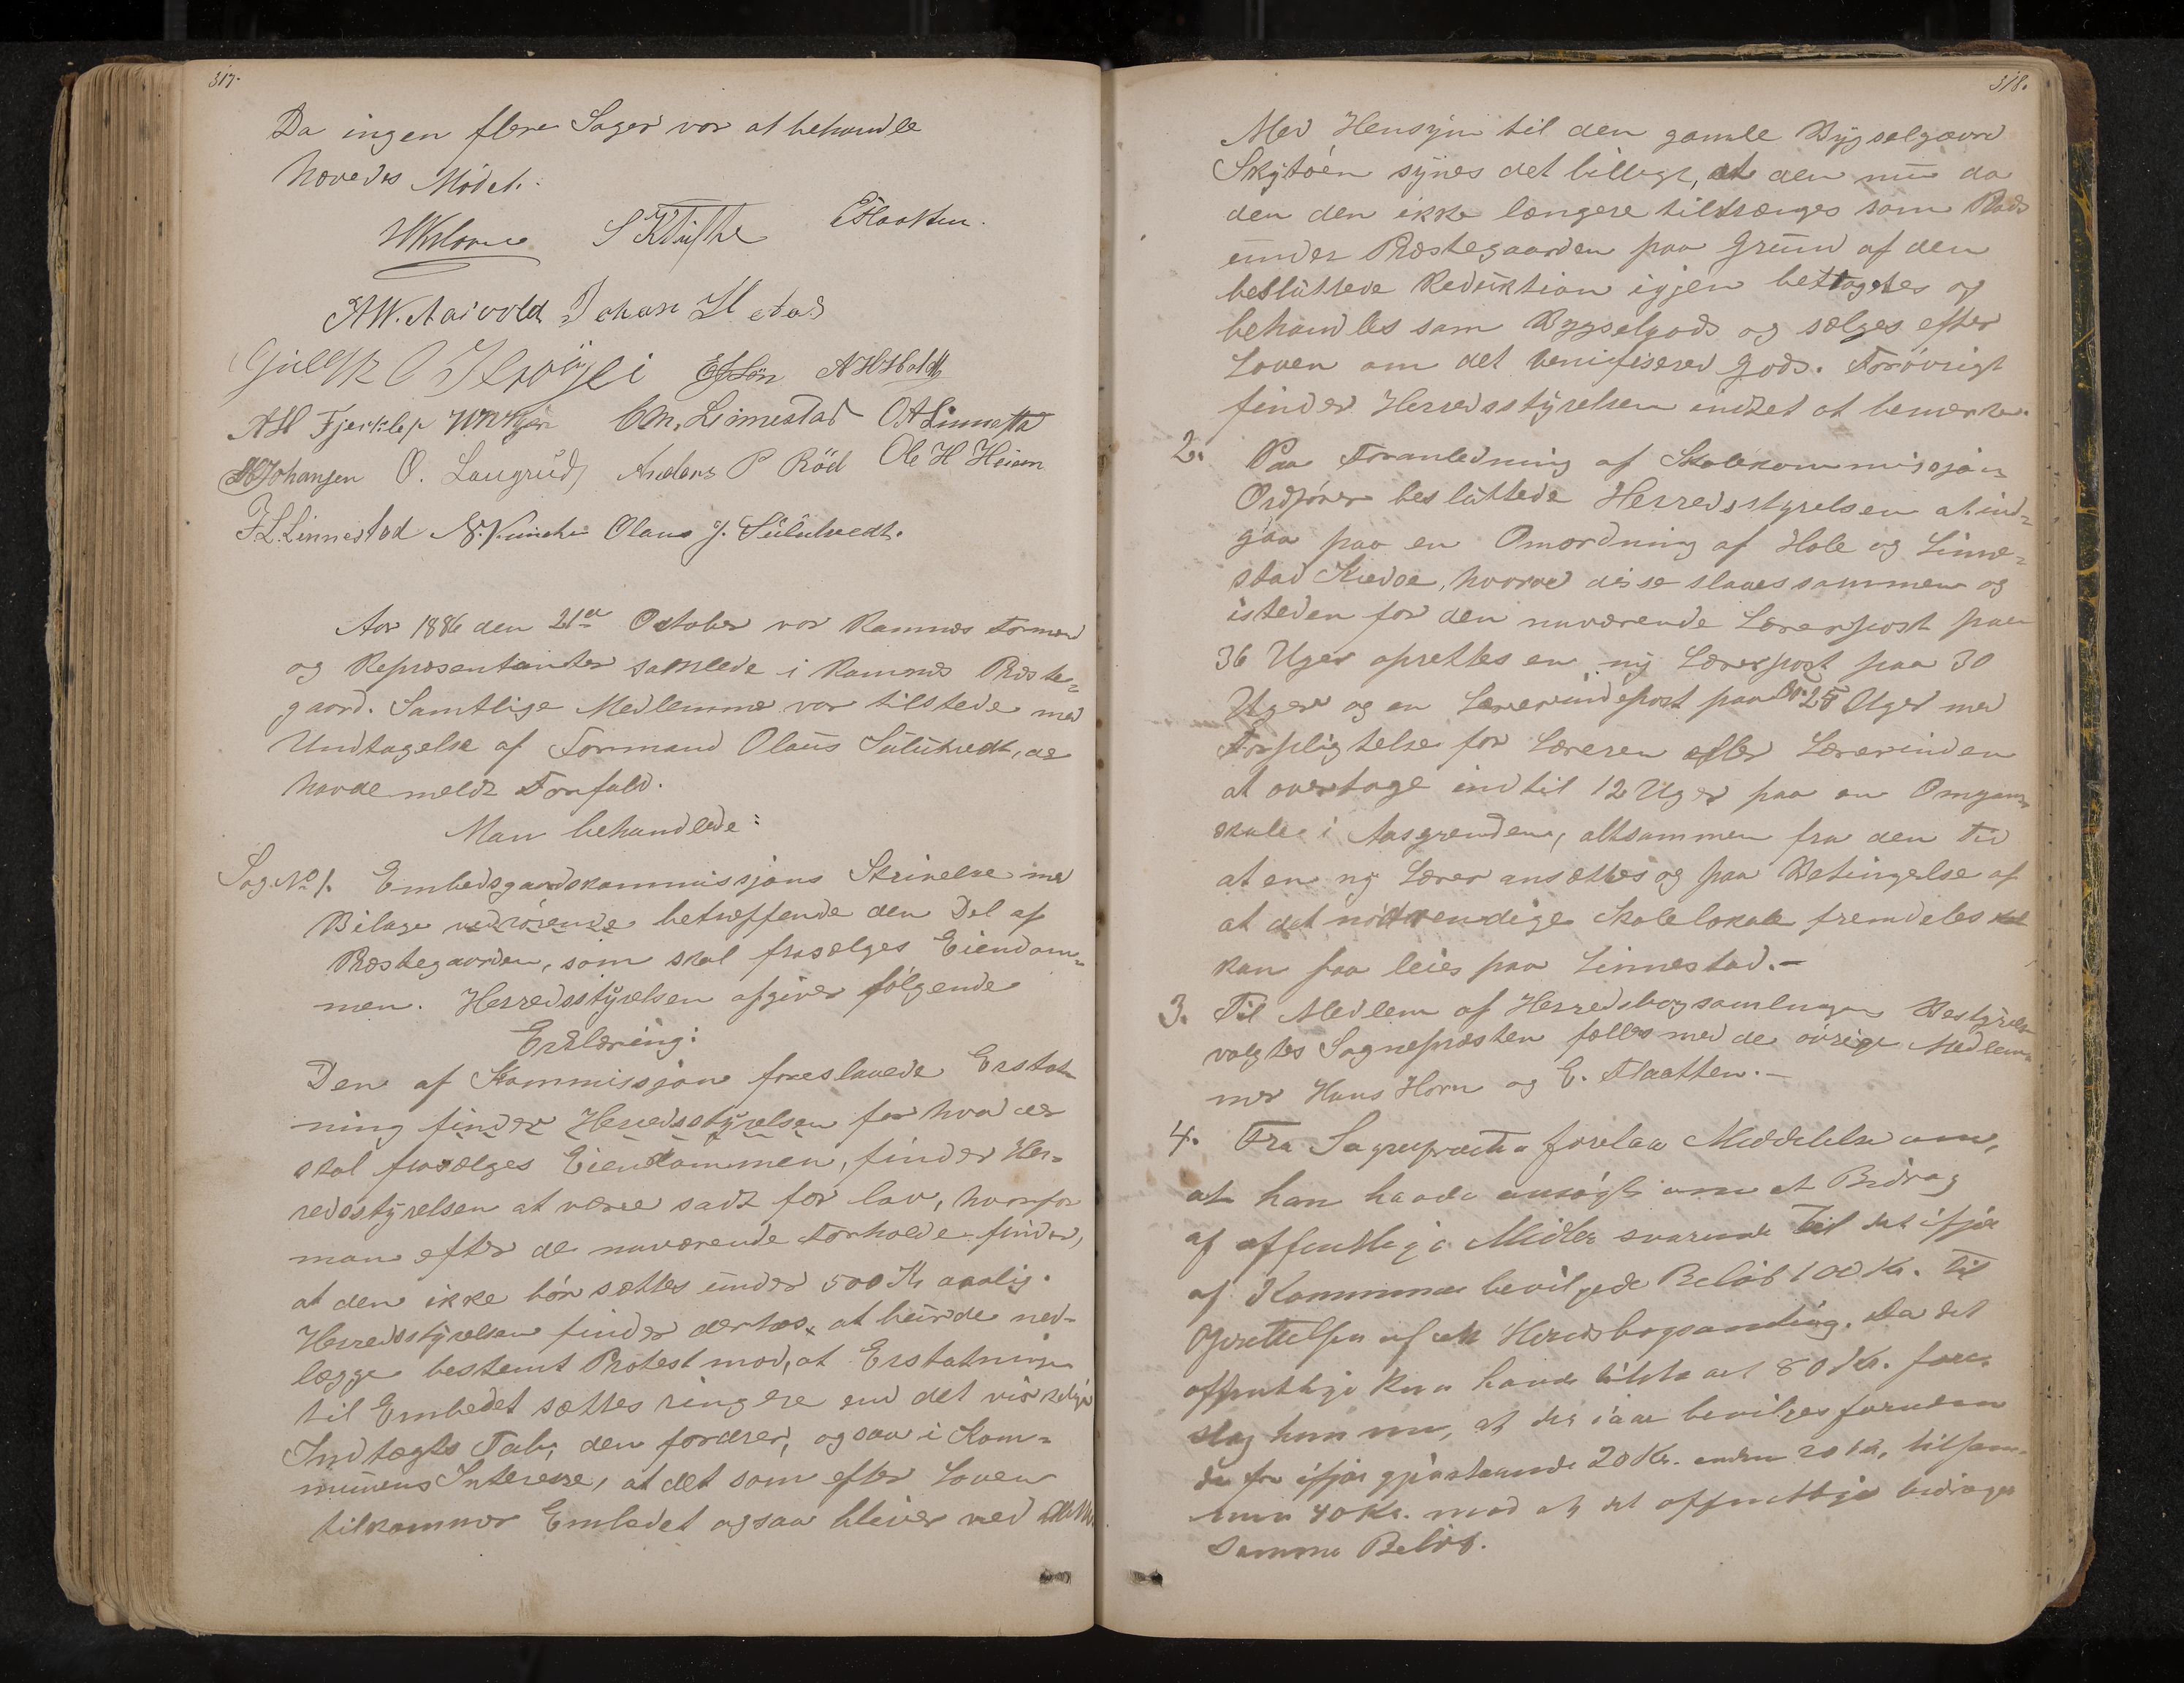 317.
Da ingen flere Sager var at behandle
hævedes Mødet.
HHorn S Klufthe E Flaatten.
A W. Narvold Johan Ilestad
A H Fjereskp Chr. Linnestad O A Linnesta
Johansen O. Laugrud Anders P Röd Ole H Hoien
F. L. Linnestad N. Olaus J. Sulutvedt.
Aar 1886 den 21de October var Ramnæs Formænd
og Repræsentanter samlede i Ramnæs Præste-
gaard. Samtlige Medlemmer var tilstede med
Undtagelse af Formand Olaus Sulutvedt, der
havde meldt Forfald.
Man behandlede:
Sag No 1. Embedsgaardskommissjons Skrivelse med
Bilage vedrørende betræffende den Del af
Præstegaarden, som skal frasælges Eiendom-
men. Herredsstyrelsen afgiver følgende
Erklæring:
Den af Kommissjon foreslaaede Erstat-
ning finder Herredsstyrelsen for hvad der
skal frasælges Eiendommen, finder Her-
redsstyrelsen at være sadt for lav, hvorfor
man efter de nuværende Forholde finder,
at den ikke bør sættes under 500 Kr aarlig.
Herredsstyrelsen finder derhos at burde ned-
lægge bestemt Protest mod, at Erstatningen
til Embedet sættes ringere end det virkelige
Indtægts Tab, den fordrer, ogsaa i Kom-
munens Interesse, at det som efter Loven
tilkommer Embedet ogsaa bliver ved dette.
318.
Med Hensyn til den gamle Bygselgaard
Skytøen synes det billigt, at den nu da
den den ikke længere tiltrænges som Plads
under Præstegaarden paa Grund af den
besluttede Reduktion igjen bettagtes og
behandles som Bygselgods og sælges efter
Loven om det benifiserede Gods. Forøvrigt
finder Herredsstyrelsen indtet at bemærke.
2. Paa Foranledning af Skolekommissjon-
Ordfører besluttede Herredsstyrelsen at ind-
gaa paa en Omordning af Hole og Linne-
stad Kredse, hvorved disse slaaes sammen og
isteden for den nuværende Lærerpost paa
36 Uger oprettes en ny Lærerpost paa 30
Uger og en Lærerindepost paa 25 Uger med
Forpligtelse for Læreren eller Lærerinden
at overtage indtil 12 Uger paa en Omgangs-
skole i Aasgrenden, altsammen fra den Tid
at en ny Lærer ansættes og paa Betingelse af
at det nødtvendige Skolelokale fremdeles skal
kan faa leies paa Linnestad.-
3. Til Medlem af Herredsbogsamlingens Bestyrelse
valgtes Sognepræsten fælles med de øvrige Medlem-
mer Hans Horn og E. Flaatten.-
4. Fra Sognepræsten forelaa Meddelelse om,
at han havde ansøgt om et Bidrag
af offentlige Midler svarende til det ifjor
af Kommunen bevilgede Beløb 100 Kr. til
Oprettelsen af en Herredsbogsamling. Da det
offentlige kun havde tilstaaet 80 Kr. fore-
slog han nu, at der iaar bevilges foruden
de fra ifjor gjenstaaende 20 Kr. endnu 20 Kr, tilsam-
men 40 Kr. mod at det offentlige bidrager
samme Beløb.